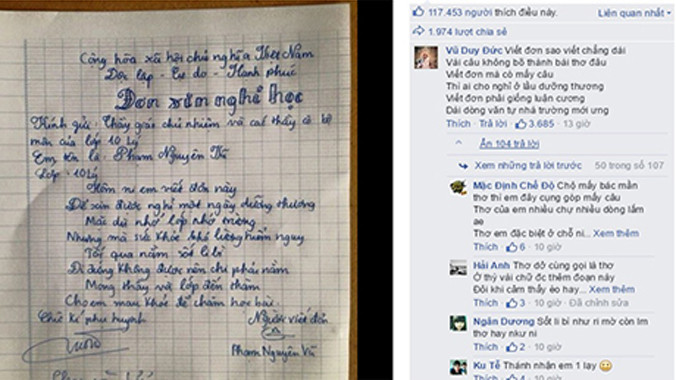 Cộng hòa xã hội chủ nghĩa Việt Nam
Độc lập - Tự do - Hạnh phúc
Đơn xin nghỉ học
Kính gửi: Thầy giáo chủ nhiệm và các thầy cô bộ
môn của lớp 10 Lý
Em tên là: Phạm Nguyên Vũ
Lớp: 10Lý
Hôm ni em viết đơn này
Để xin được nghỉ một ngày dưỡng thương
Mặc dù nhớ lớp nhớ trường
Nhưng mà sức khỏe khó lường hiểm nguy
Tối qua nằm sốt li bì
Đi đứng không được nên chi phải nằm
Mong thầy và lớp đến thăm
Cho em mau khỏe để chăm học bài.
Chữ kí phụ huynh
Người viết đơn
Phạm Nguyên Vũ
117.453 người thích điều này.
Liên quan nhất
1.974 lượt chia sẻ
Vũ Duy Đức Viết đơn sao viết chẳng dài
Vài câu không bõ thành bài thơ đâu
Viết đơn mà có mấy câu
Thì ai cho nghỉ ở lâu dưỡng thương
Viết đơn phải giống luận cương
Dài dòng văn tự nhà trường mới ưng
Thích · Trả lời · 3.685 · 13 giờ
Ẩn 104 trả lời
Xem những trả lời trước 50 trong số 107
Mặc Định Chế Độ Chỗ mấy bác mần
thơ thì em đây cụng góp mấy câu
Thơ của em nhiều chợ nhiều dòng lắm
ae
Thơ em đặc biệt ở chỗ ni... Xem thêm
Thích · 6 · 10 giờ
Hải Anh Thơ dở cùng gọi là thơ
Ở thỳ vài chữ đc thêm đoạn này
Đôi khi cảm thấy éo hay... Xem thêm
Thích · 3 · 10 giờ · Đã chỉnh sửa
Ngân Dương Sốt li bì như ri mờ còn lm
thơ hay nkư ni
Thích · 2 · 10 giờ
Ku Tễ Thánh nhận em 1 lạy
Thích · 4 · 10 giờ